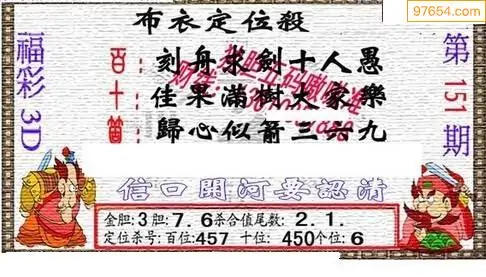 97654.com
布衣定位殺
福彩3D
第151期
百:刻舟求劍十人愚
十:佳果滿樹大家樂
箇:歸心似箭三六九
信口開河要認清
金胆:3胆:7.6杀合值尾数:2.1.
定位杀号:百位:457 十位:450个位:6